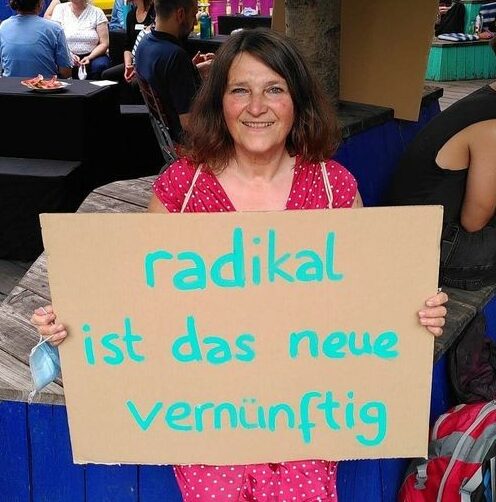 radikal
ist das neue
vernünftig